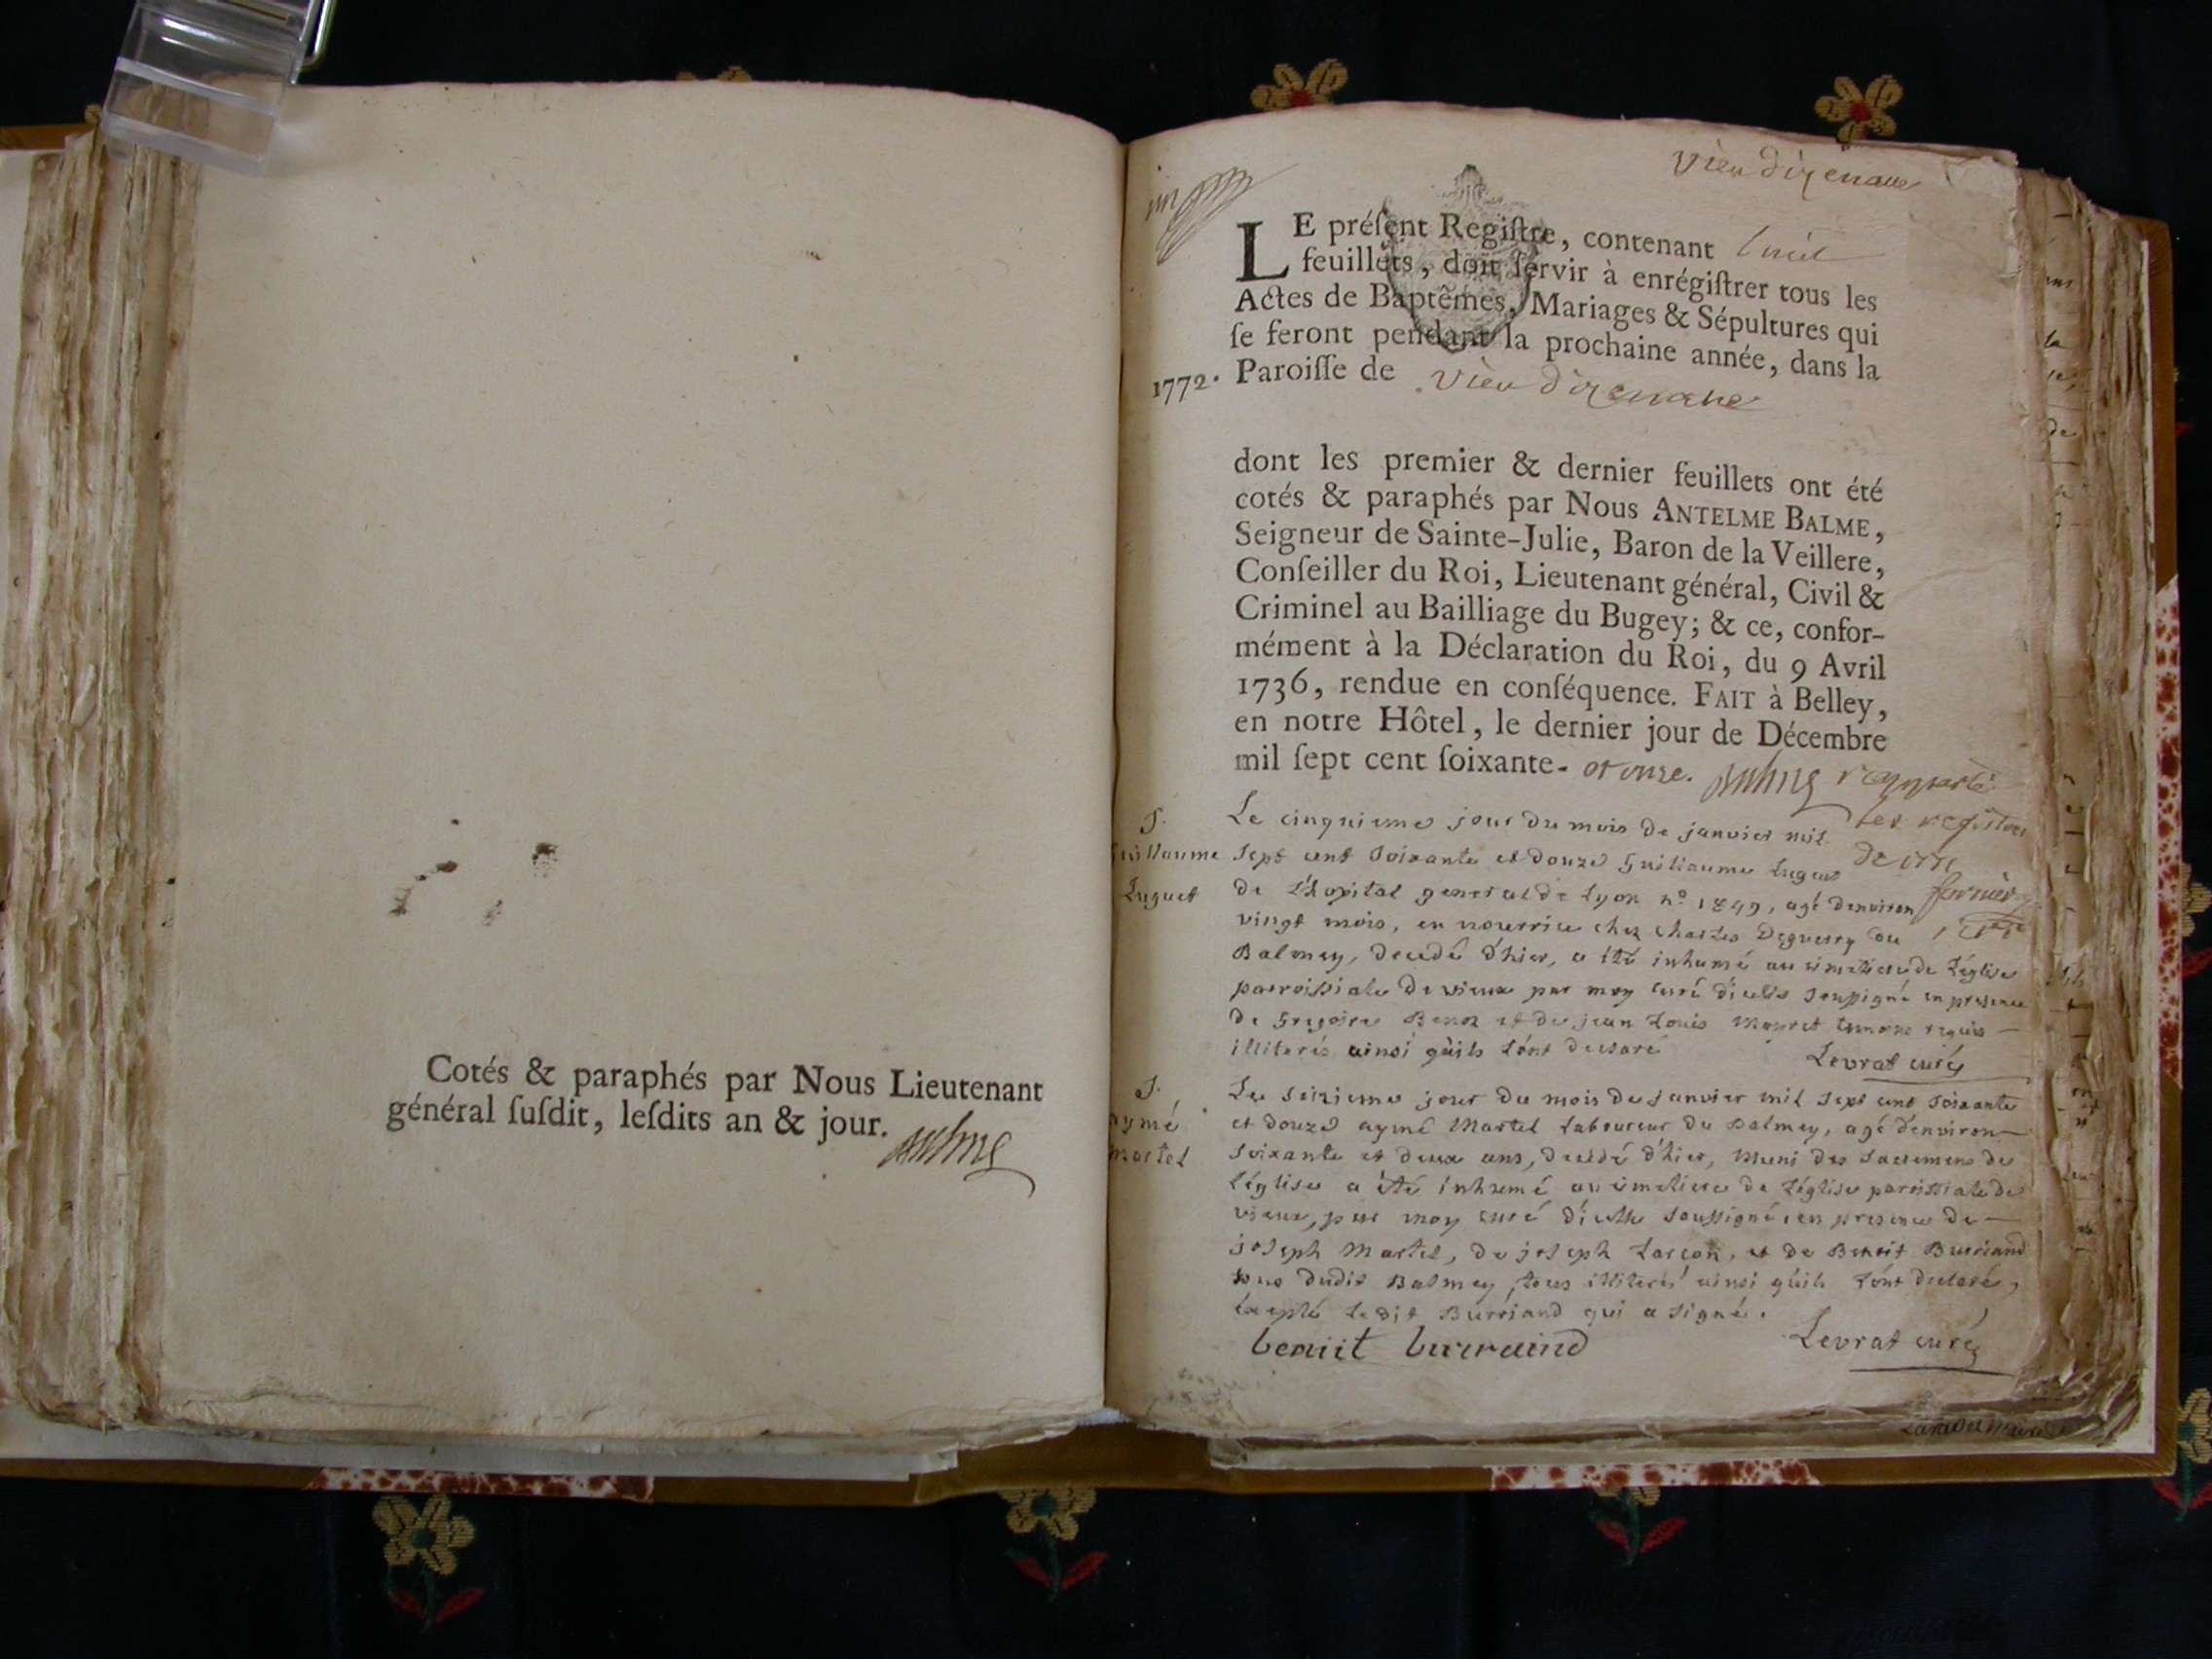 Cotés & paraphés par Nous Lieutenant
général ſuſdit, leſdits an & jour.
Vieu d'izenave
LE préſent Regiſtre, contenant huit
feuillets, doit ſervir à enrégiſtrer tous les
Actes de Baptêmes, Mariages & Sépultures qui
ſe feront pendant la prochaine année, dans la
1772. Paroiſſe de Vieu d'izenave
dont les premier & dernier feuillets ont été
cotés & paraphés par Nous ANTELME BALME,
Seigneur de Sainte-Julie, Baron de la Veillere,
Conſeiller du Roi, Lieutenant général, Civil &
Criminel au Bailliage du Bugey; & ce, confor-
mément à la Déclaration du Roi, du 9 Avril
1736, rendue en conſéquence. FAIT à Belley,
en notre Hôtel, le dernier jour de Décembre
mil ſept cent ſoixante- et onze.
S.
Guillaume
Luguet
Le cinquieme jour du mois de janvier mil
sept cent soixante et douze Guillaume Luguet
de l'hopital general de Lyon n.º 1849, agé d'environ
vingt mois, en nourrice chez Charles Deguerry du
Balmey, decedé d'hier, a été inhumé au cimetiere de l'église
paroissiale de vieux par moy curé d'icelle soussigné en presence
de Gregoire Benoz et de jean Louis Mayret temoins requis
illiterés ainsi qu'ils l'ont declaré
Levrat curé
S.
aymé
martel
Le seizieme jour du mois de janvier mil sept cent soixante
et douze aymé Martel Laboureur du Balmey, agé d'environ
soixante et deux ans, decedé d'hier, muni des sacremens de
l'église a été inhumé au cimetiere de l'église paroissiale de
vieux, par moy curé d'icelle soussigné, en presence de
joseph Martel, de joseph Larçon, et de Benoit Burriand
tous dudit Balmey, tous illiterés ainsi qu'ils l'ont declaré,
excepté ledit Burriand qui a signé.
benoit burraind
Levrat curé